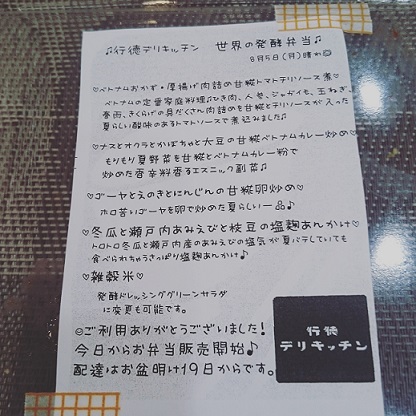 ♫行徳デリキッチン　世界の発酵弁当♫
8月5日(月)晴れ
♡ベトナムおかず・厚揚げ肉詰の甘糀トマトチリソース煮♡
ベトナムの定番家庭料理♫ひき肉、人参、ジャガイモ、玉ねぎ、
春雨、きくらげの具だくさん肉詰めを甘糀とチリソースが入った
夏らしい酸味のあるトマトソースで煮込みました♫
♡ナスとオクラとかぼちゃと大豆の甘糀ベトナムカレー炒め♡
もりもり夏野菜を甘糀とベトナムカレー粉で
炒めた香辛料香るエスニック副菜♫
♡ゴーヤとえのきとにんじんの甘糀卵炒め♡
ホロ苦いゴーヤを卵で炒めた夏らしい一品♪
♡冬瓜と瀬戸内あみえびと枝豆の塩麹あんかけ♡
トロトロ冬瓜と瀬戸内産のあみえびの塩気が夏バテしていても
食べられちゃうさっぱり塩麹あんかけ♪
♡雑穀米♡
発酵ドレッシンググリーンサラダ
に変更も可能です。
☺ご利用ありがとうございました!
今日からお弁当販売開始♪
配達はお盆明け19日からです。
行徳
デリキッチン